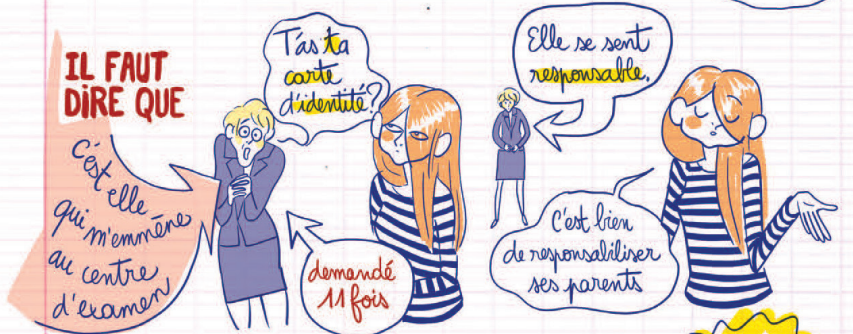 IL FAUT
DIRE QUE
C'est elle
qui m'emmène
au centre
d'examen
T'as ta
carte
d'identité?
demandé
11 fois
Elle se sent
responsable.
C'est bien
de responsabiliser
ses parents